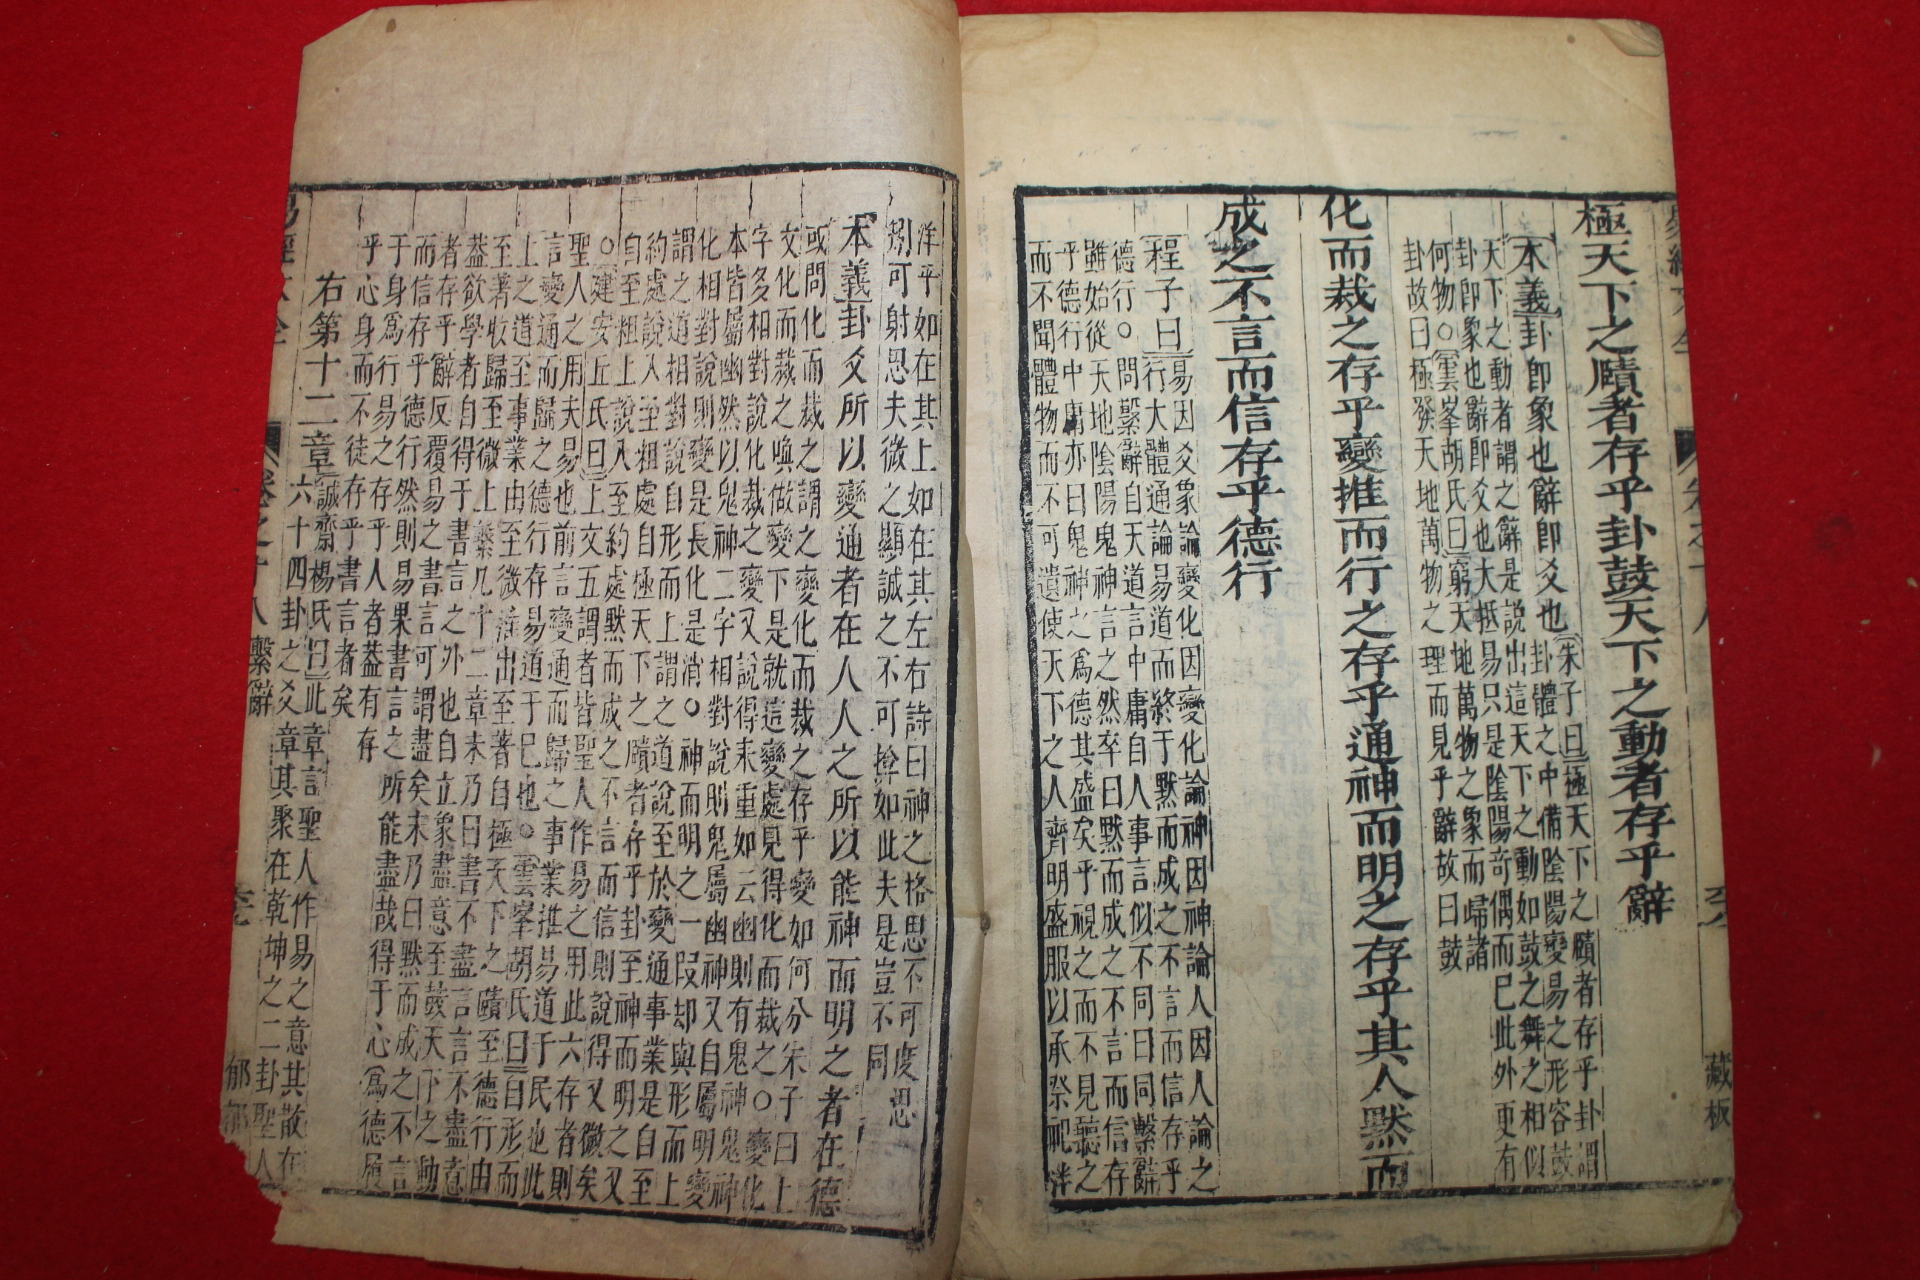 極天下之賾者存乎卦鼓天下之動者存乎辭
本義卦即象也辭即爻也朱子曰極天下之賾者存乎卦謂
卦體之中備陰陽變易之形容鼓
天下之動者謂之辭是說出這天下之動如鼓之舞之相似
卦即象也辭即爻也大抵易只是陰陽奇偶而已此外更有
何物○雲峯胡氏曰窮天地萬物之象而歸諸
卦故曰極發天地萬物之理而見乎辭故曰鼓
化而裁之存乎變推而行之存乎通神而明之存乎其人默而
成之不言而信存乎德行
程子曰易因爻象論變化因變化論神因神論人因人論之
行大體通論易道而終于默而成之不言而信存乎
德行○問繫辭自天道言中庸自人事言似不同曰同繫辭
雖始從天地陰陽鬼神言之然卒曰默而成之不言而信存
乎德行中庸亦曰鬼神之爲德其盛矣乎視之而不見聽之
而不聞體物而不可遺使天下之人齊明盛服以承祭祀洋
洋乎如在其上如在其左右詩曰神之格思不可度思
矧可射思夫微之顯誠之不可揜如此夫是豈不同
本義卦爻所以變通者在人人之所以能神而明之者在德
或問化而裁之謂之變化而裁之存乎變如何分朱子曰上
文化而裁之喚做變下是就這變處見得化而裁之○變化
字多相對說化裁之變又說得來重如云幽則有鬼神鬼神
本皆屬幽然以鬼神二字相對說則鬼屬幽神又自屬明變
化相對說則變是長化是消○神而明之一段却與形而上
謂之道相對說自形而上謂之道說至於變通事業是自至
約處說入至粗處自極天下之賾者存乎卦至神而明之又
自至粗上說入至約處默而成之不言而信則說得又微矣
○建安丘氏曰上文五謂者皆聖人作易之用此六存者則
聖人之用夫易也前言變通而歸之事業推易道于民也此
言變通而歸之德行存易道于已也○雲峯胡氏曰自形而
上之道至事業由至微推出至著自極天下之賾至德行由
至著收歸至微上繫凡十二章末乃曰書不盡言言不盡意
葢欲學者自得于書言之外也自立象盡意至鼓天下之動
者存乎辭反覆易之書言可謂盡矣末乃曰默而成之不言
而信存乎德行然則易果書言之所能盡哉得于心爲德履
于身爲行易之存乎人者葢有存
乎心身而不徒存乎書言者矣
右第十二章誠齋楊氏曰此章言聖人作易之意其散在
六十四卦之爻章其聚在乾坤之二卦聖人
卷之十八 繫辭
藏板